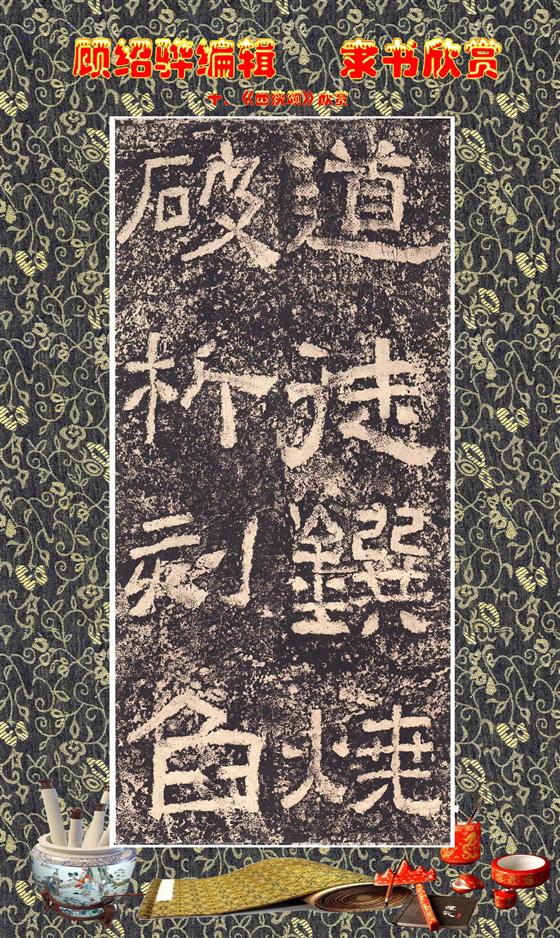 顾绍骅编辑 隶书欣赏
十、《西狭颂》欣赏
道徒鐉燒
破析刻臽